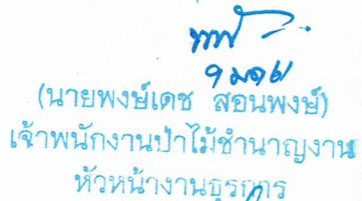 (นายพงษ์เดช สอนพงษ์)
เจ้าพนักงานป่าไม้ชำนาญงาน
หัวหน้างานธุรการ